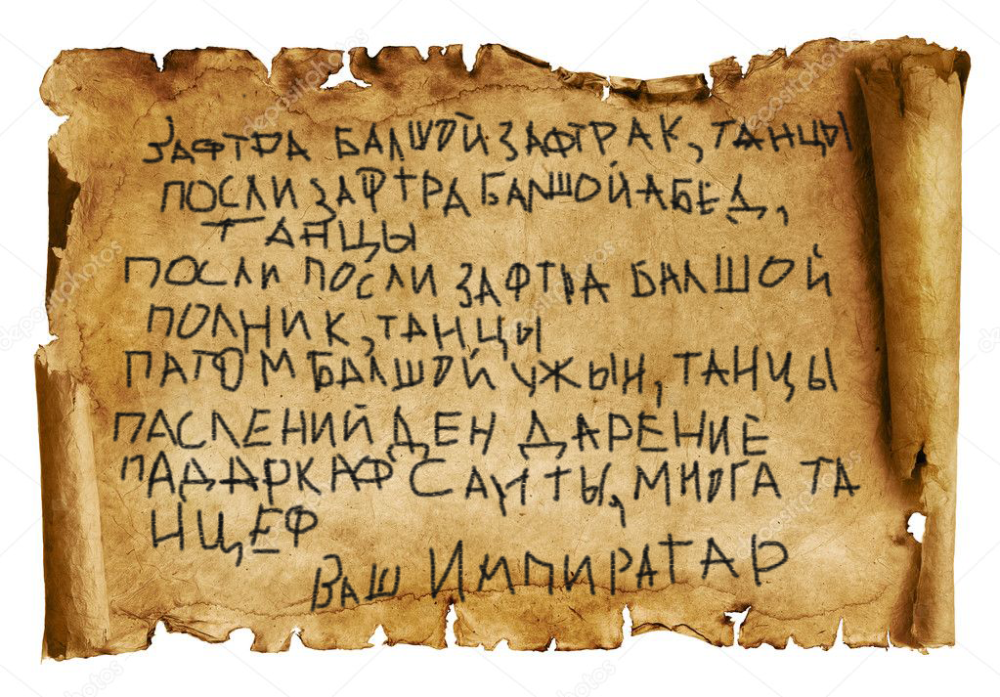 ЗАФТРА БАЛШОЙ ЗАФТРАК, ТАНЦЫ
ПОСЛИ ЗАФТРА БАЛШОЙ АБЕД,
ТАНЦЫ
ПОСЛИ ПОСЛИ ЗАФТРА БАЛШОЙ
ПОЛНИК, ТАНЦЫ
ПАТОМ БАЛШОЙ УЖЫН, ТАНЦЫ
ПАСЛЕНИЙ ДЕН ДАРЕНИЕ
ПАДАРКАФ САЛТЫ, МНОГА ТА
НЦЕФ
ВАШ ИМПИРАТАР